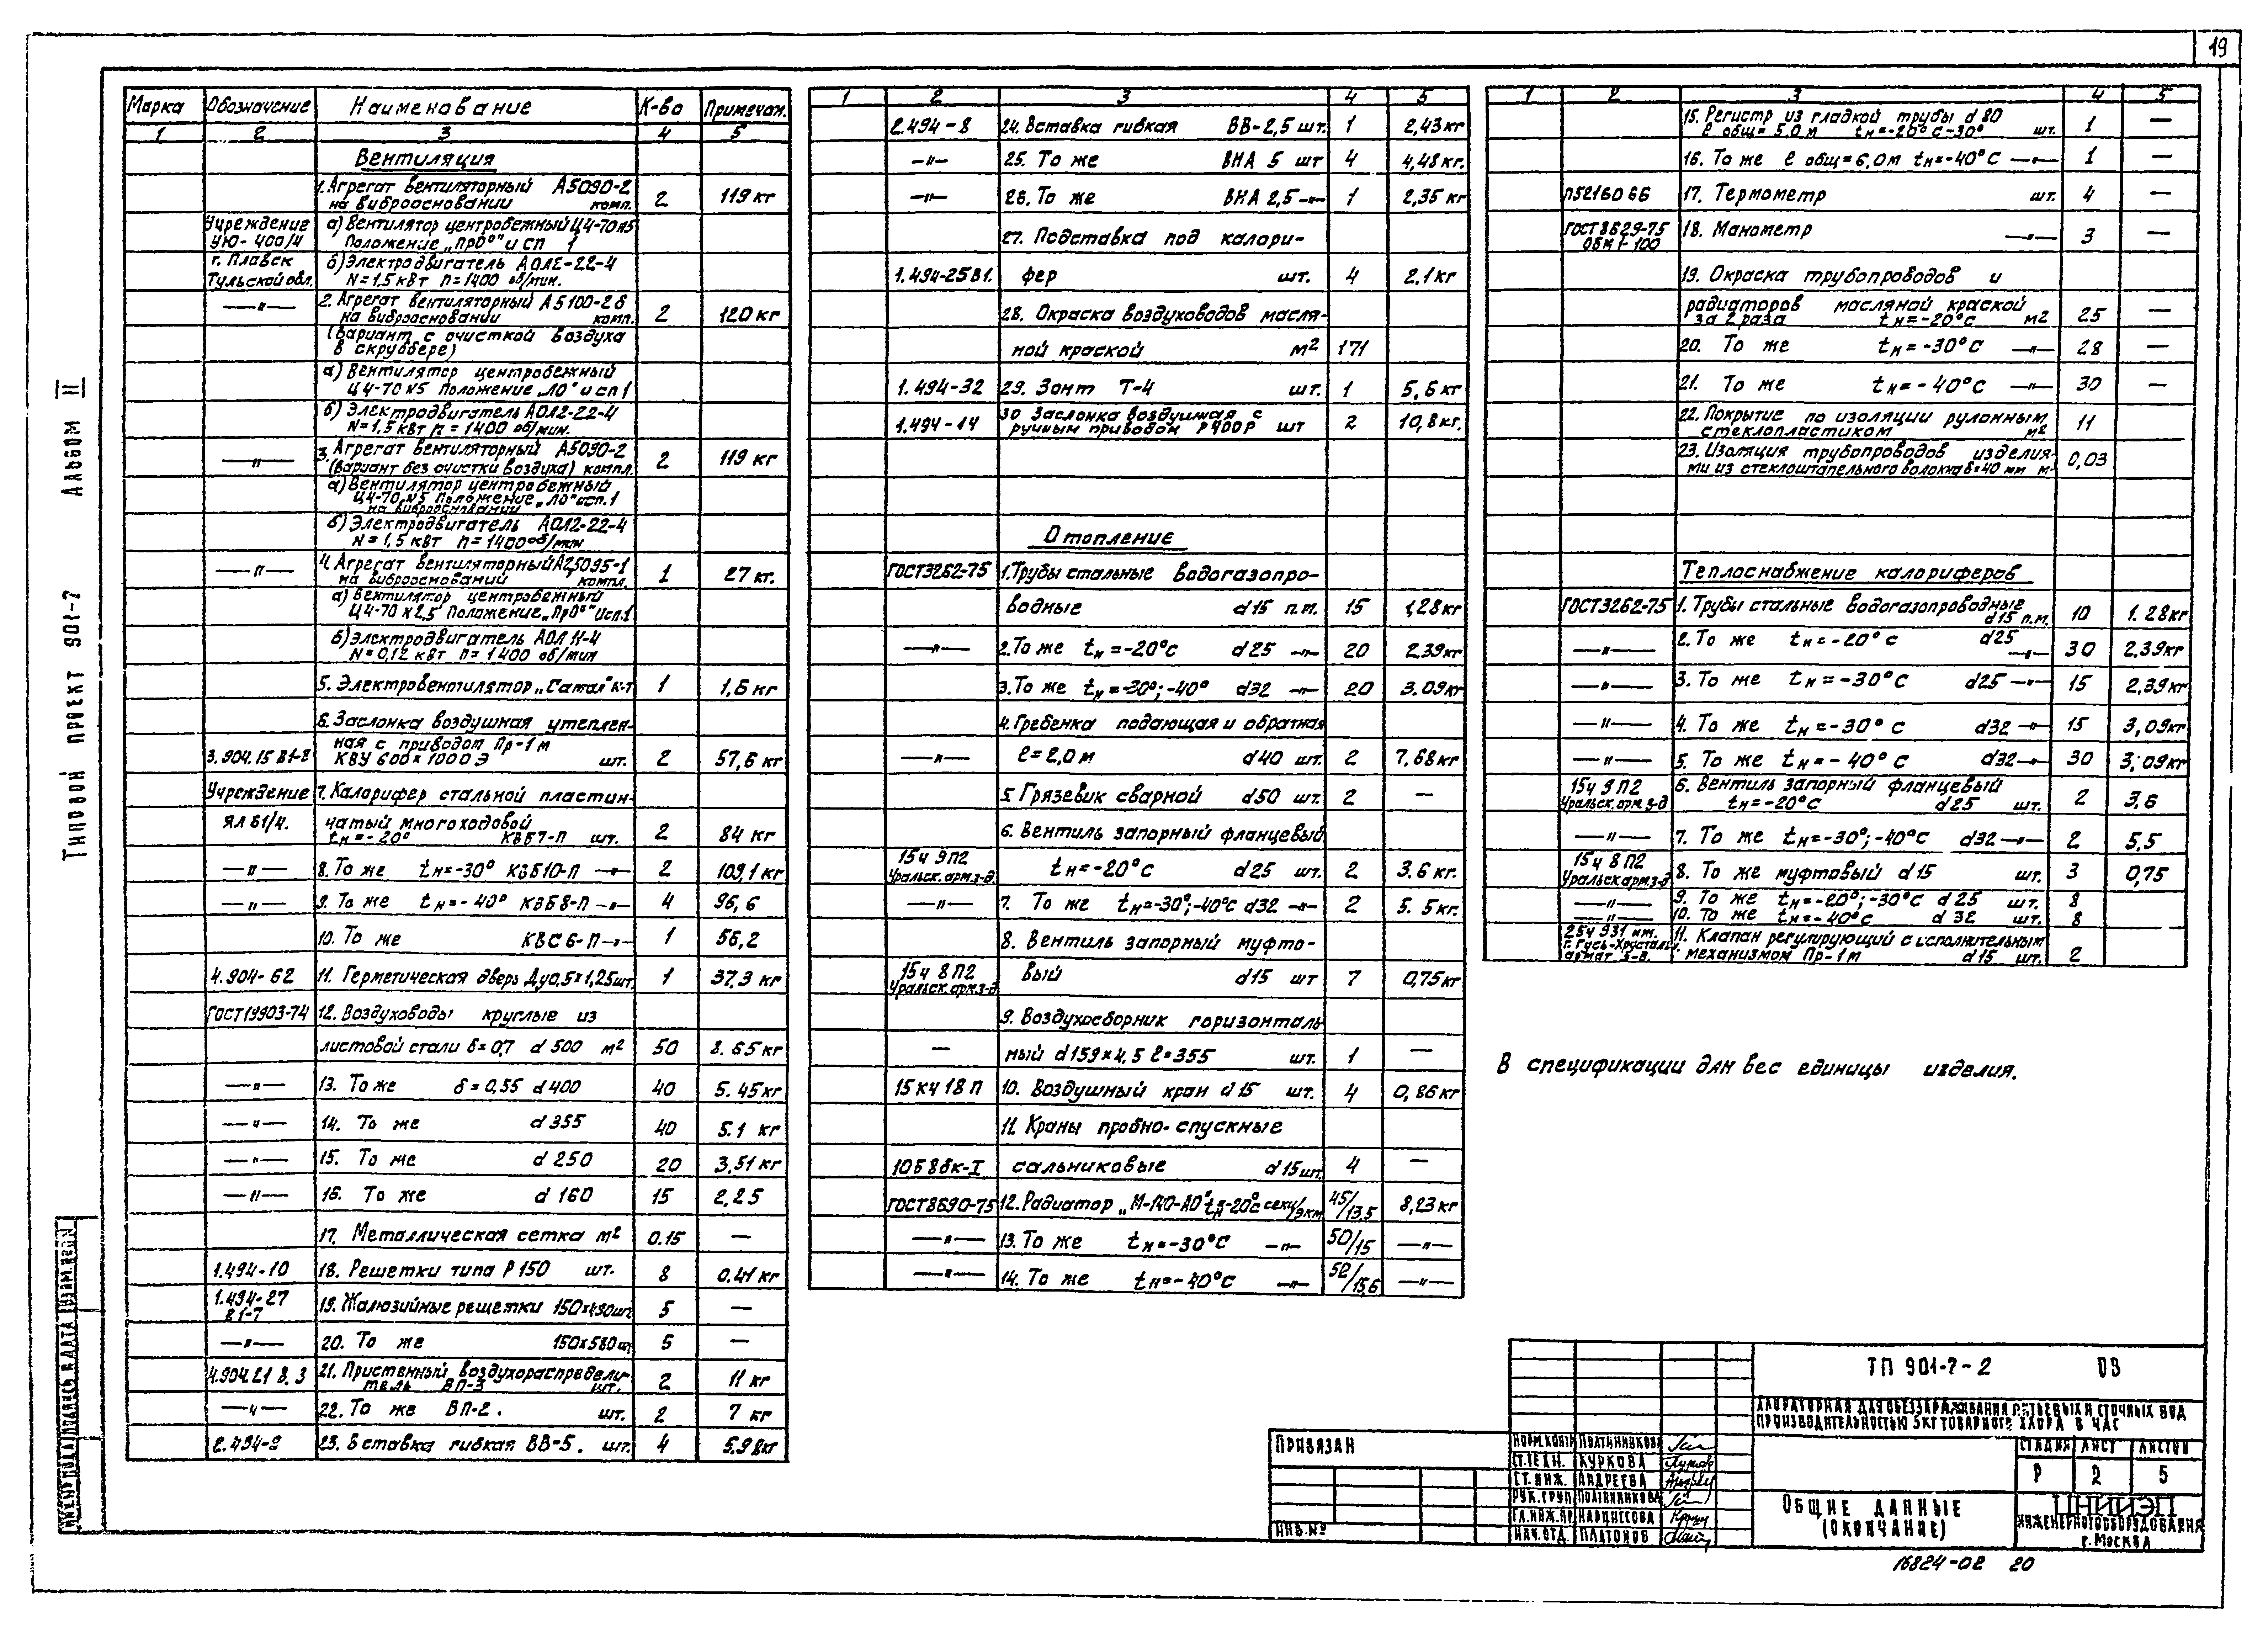 19
Альбом II
Типовой проект 901-7
Марка Обозначение Наименование К-во Примечан.
1 2 3 4 5
Вентиляция
1. Агрегат вентиляторный А5090-2
на виброосновании комп. 2 119 кг
Учреждение а) Вентилятор центробежный Ц4-70 №5
УЮ-400/4 Положение „Пр0°" и сп 1
г. Плавск б) Электродвигатель АОЛ2-22-4
Тульской обл. N=1,5 кВт n=1400 об/мин.
—"— 2. Агрегат вентиляторный А5100-2б
на виброосновании комп. 2 120 кг
(Вариант с очисткой воздуха
в скруббере)
а) Вентилятор центробежный
Ц4-70 №5 Положение „Л0" и сп 1
б) Электродвигатель АОЛ2-22-4
N=1,5 кВт n=1400 об/мин.
—"— 3. Агрегат вентиляторный А5090-2
(вариант без очистки воздуха) компл. 2 119 кг
а) Вентилятор центробежный
Ц4-70 №5 Положение „Л0" исп. 1
на виброосновании
б) Электродвигатель АОЛ2-22-4
N=1,5 кВт n=1400 об/мин
—"— 4. Агрегат вентиляторный А25095-1
на виброоснований компл. 1 27 кг.
а) Вентилятор центробежный
Ц4-70 №2,5 Положение „Пр0°" Исп.1
б) Электродвигатель АОЛ 11-4
N=0,12 кВт n=1400 об/мин
5. Электровентилятор „Самал" к-т 1 1,6 кг
6. Заслонка воздушная утеплен-
ная с приводом Пр-1м
3.904.15 В1-2 КВУ 600×1000 Э шт. 2 57,6 кг
Учреждение 7. Калорифер стальной пластин-
ЯЛ 61/4. чатый многоходовой
tн=-20° КВБ7-П шт. 2 84 кг
—"— 8. То же tн=-30° КВБ10-П —"— 2 109,1 кг
—"— 9. То же tн=-40° КВБ8-П —"— 4 96,6
10. То же КВС6-П —"— 1 56,2
4.904-62 11. Герметическая дверь Ду 0,5×1,25 шт. 1 37,3 кг
ГОСТ 19903-74 12. Воздуховоды круглые из
листовой стали δ=0,7 d 500 м² 50 8.65 кг
—"— 13. То же δ=0,55 d 400 40 5.45 кг
—"— 14. То же d 355 40 5.1 кг
—"— 15. То же d 250 20 3,51 кг
—"— 16. То же d 160 15 2,25
17. Металлическая сетка м² 0.15 —
1.494-10 18. Решетки типа Р150 шт. 8 0.41 кг
1.494-27
В 1-7 19. Жалюзийные решетки 150×490 шт. 5 —
—"— 20. То же 150×580 шт. 5 —
4.904.21 В.3 21. Пристенный воздухораспредели-
тель ВП-3 шт. 2 11 кг
—"— 22. То же ВП-2. шт. 2 7 кг
23. Вставка гибкая ВВ-5. шт. 4 5.98 кг
1 2 3 4 5
2.494-8 24. Вставка гибкая ВВ-2,5 шт. 1 2,43 кг
—"— 25. То же ВНА 5 шт 4 4,48 кг.
—"— 26. То же ВНА 2,5 —"— 1 2,35 кг
27. Подставка под калори-
1.494-25 В1. фер шт. 4 2,1 кг
28. Окраска воздуховодов масля-
ной краской м² 171
1.494-32 29. Зонт Т-4 шт. 1 5,6 кг
1.494-14 30 Заслонка воздушная с
ручным приводом Р400Р шт 2 10,8 кг.
Отопление
ГОСТ 3262-75 1. Трубы стальные водогазопро-
водные d15 п.м. 15 1,28 кг
—"— 2. То же tн=-20°с d25 —"— 20 2,39 кг
3. То же tн=-30°;-40° d32 —"— 20 3.09 кг
4. Гребенка подающая и обратная
—"— ℓ=2,0 м d40 шт. 2 7,68 кг
5 Грязевик сварной d50 шт. 2 —
6. Вентиль запорный фланцевый
15ч 9П2
Уральск. арм. з-д. tн=-20°с d25 шт. 2 3.6 кг.
—"— 7. То же tн=-30°;-40°с d32 —"— 2 5.5 кг.
8. Вентиль запорный муфто-
15ч 8П2
Уральск. арм. з-д вый d15 шт 7 0,75 кг
9. Воздухосборник горизонталь
— ный d159×4,5 ℓ=355 шт. 1 —
15 кч 18 п 10. Воздушный кран d15 шт. 4 0,86 кг
11. Краны пробно-спускные
10Б8бк-I сальниковые d15 шт. 4 —
ГОСТ 8690-75 12. Радиатор „М-140-А0" tн=-20°с секц/экм 45/13,5 8,23 кг
—"— 13. То же tн=-30°с —"— 50/15 —"—
—"— 14. То же tн=-40°с —"— 52/15,6 —"—
1 2 3 4 5
15. Регистр из гладкой трубы d 80
ℓ общ=5.0 м tн=-20°с-30° шт. 1 —
16. То же ℓ общ=6,0 м tн=-40°С —"— 1 —
П5216066 17. Термометр шт. 4 —
ГОСТ 8629-75
ОБМ 1-100 18. Манометр —"— 3 —
19. Окраска трубопроводов и
радиаторов масляной краской
за 2 раза tн=-20°с м2 25 —
20. То же tн=-30°с —"— 28 —
21. То же tн=-40°с —"— 30 —
22. Покрытие по изоляции рулонным
стеклопластиком м² 11
23. Изоляция трубопроводов изделия-
ми из стеклоштапельного волокна δ=40 мм м³ 0,03
Теплоснабжение калориферов
ГОСТ 3262-75 1. Трубы стальные водогазопроводные
d15 п.м. 10 1.28 кг
—"— 2. То же tн=-20°с d25 —"— 30 2,39 кг
—"— 3. То же tн=-30°с d25 —"— 15 2,39 кг
—"— 4. То же tн=-30°с d32 —"— 15 3,09 кг
—"— 5. То же tн=-40°с d32 —"— 30 3,09 кг
15ч 9 П2 6. Вентиль запорный фланцевый
Уральск. арм. з-д tн=-20°с d25 шт. 2 3,6
—"— 7. То же tн=-30°;-40°с d32 —"— 2 5,5
15ч 8 П2
Уральск арм. з-д 8. То же муфтовый d15 шт. 3 0,75
—"— 9. То же tн=-20°;-30°с d 25 шт. 8
—"— 10. То же tн=-40°с d 32 шт. 8
25ч 931 нж. 11. Клапан регулирующий с исполнительным
г. Гусь-Хрустальн.
армат з-д. механизмом Пр-1м d15 шт. 2
В спецификации дан вес единицы изделия.
ТП 901-7-2 ОВ
Хлораторная для обеззараживания питьевых и сточных вод
производительностью 5 кг товарного хлора в час
Привязан
Инв.№
Норм.контр Полтинникова
Ст.техн. Куркова
Ст.инж. Андреева
Рук.груп Полтинникова
Гл.инж.пр Нарциссова
Нач.отд. Платонов
Стадия Лист Листов
Р 2 5
Общие данные
(окончание)
ЦНИИЭП
инженерного оборудования
г. Москва
16824-02 20
Инв.№ подл. Подпись и дата Взам.инв.№